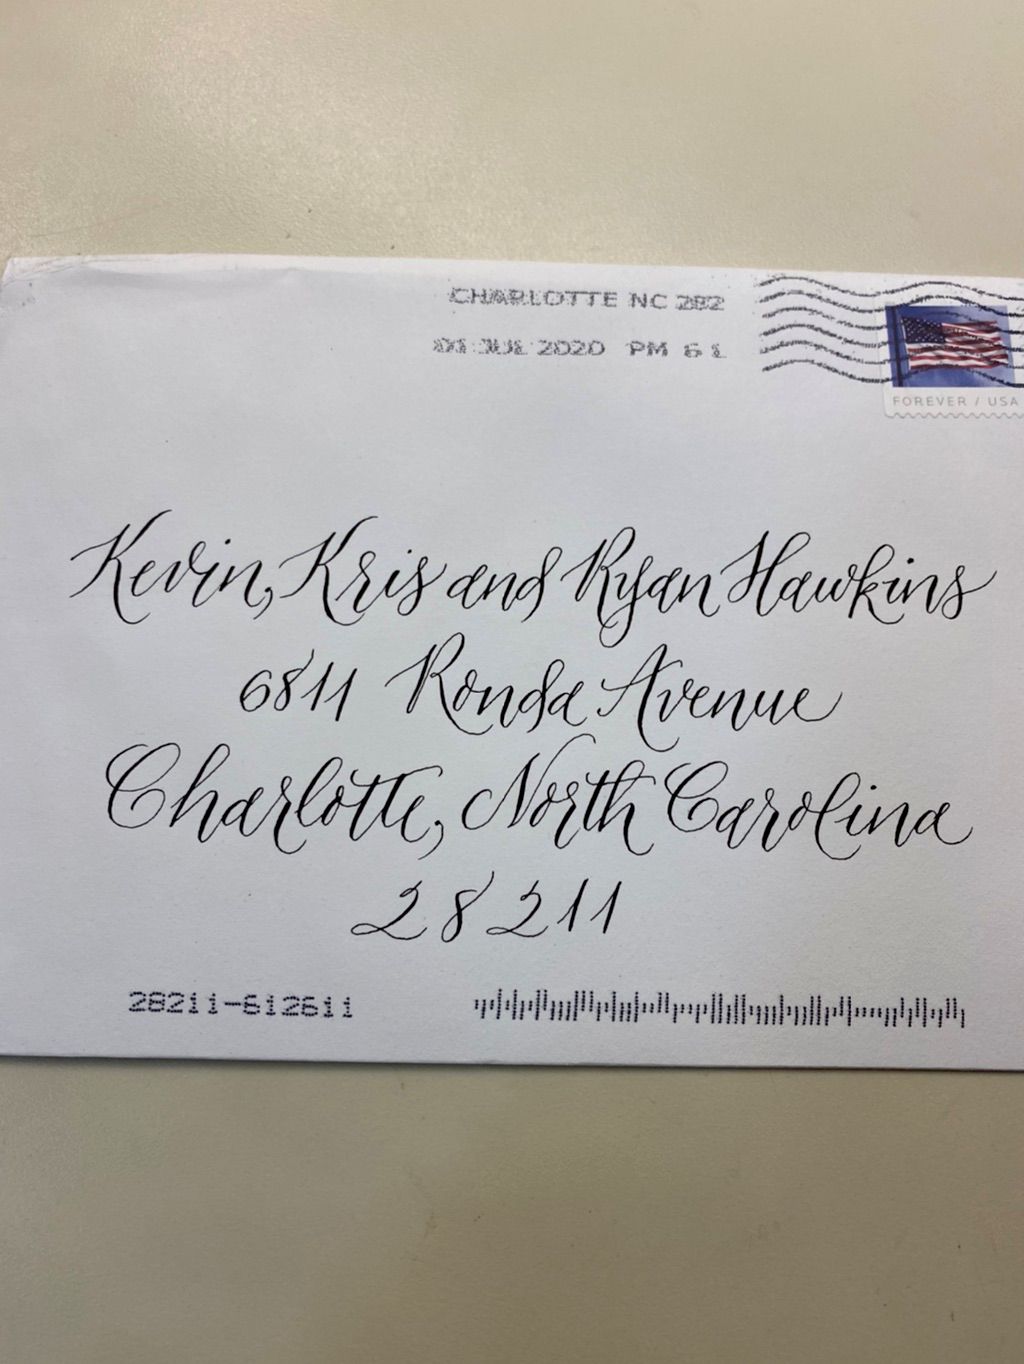 CHARLOTTE NC 282
01 JUL 2020 PM 6 L
FOREVER / USA
Kevin, Kris and Ryan Hawkins
6811 Ronda Avenue
Charlotte, North Carolina
28211
28211-612611